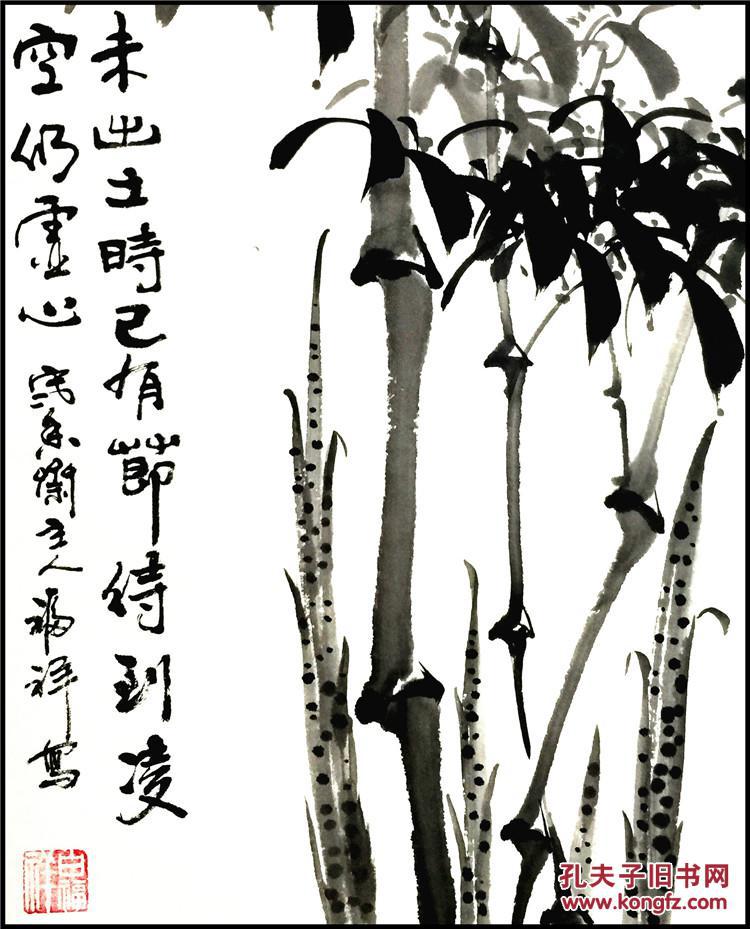 未出土時已有節待到凌
空仍虛心 主人福祥寫
孔夫子旧书网
www.kongfz.com